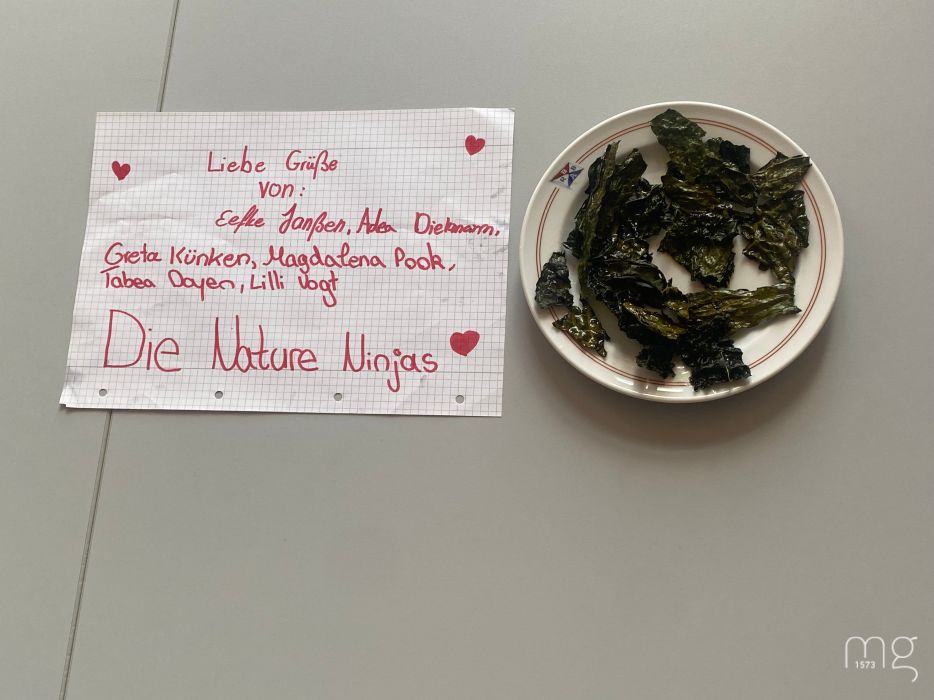 Liebe Grüße
von:
Eefke Janßen, Adea Diekmann,
Greta Künken, Magdalena Pook,
Tabea Doyen, Lilli Vogt
Die Nature Ninjas
mg
1573